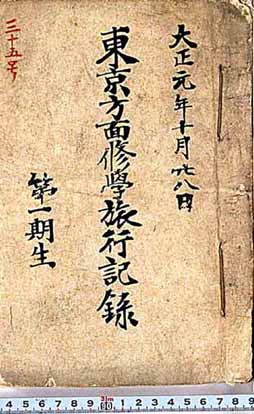 大正元年十月廿八日
東京方面修學旅行記録
第一期生
三十五号
4 5 6 7 8 9 3m 60 1 2 3 4 5 6 7 8 9